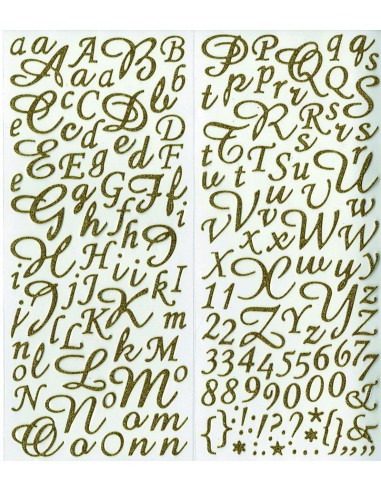 a a A a B
A a a B b
e C c C D b
E c c d D
e E E g d F
G g G F f
G h f h f i
H H i i k I
i I J j K k
I L K K m
n l L k M
o L M o
N N o m m
O o n n
P P P q q s
t p p r Q Q s
t R R r s s
T T R S r U
w t T S u u
v v v W W
x x v V W
X X w y y
1 1 X Y Y
2 2 Z Y z Z
3 3 4 4 5 5 6 6 7
8 8 9 9 0 0 0 & 7
{ } ! : ! ? ? * { }
{ } . : * . * ( ) , , ,